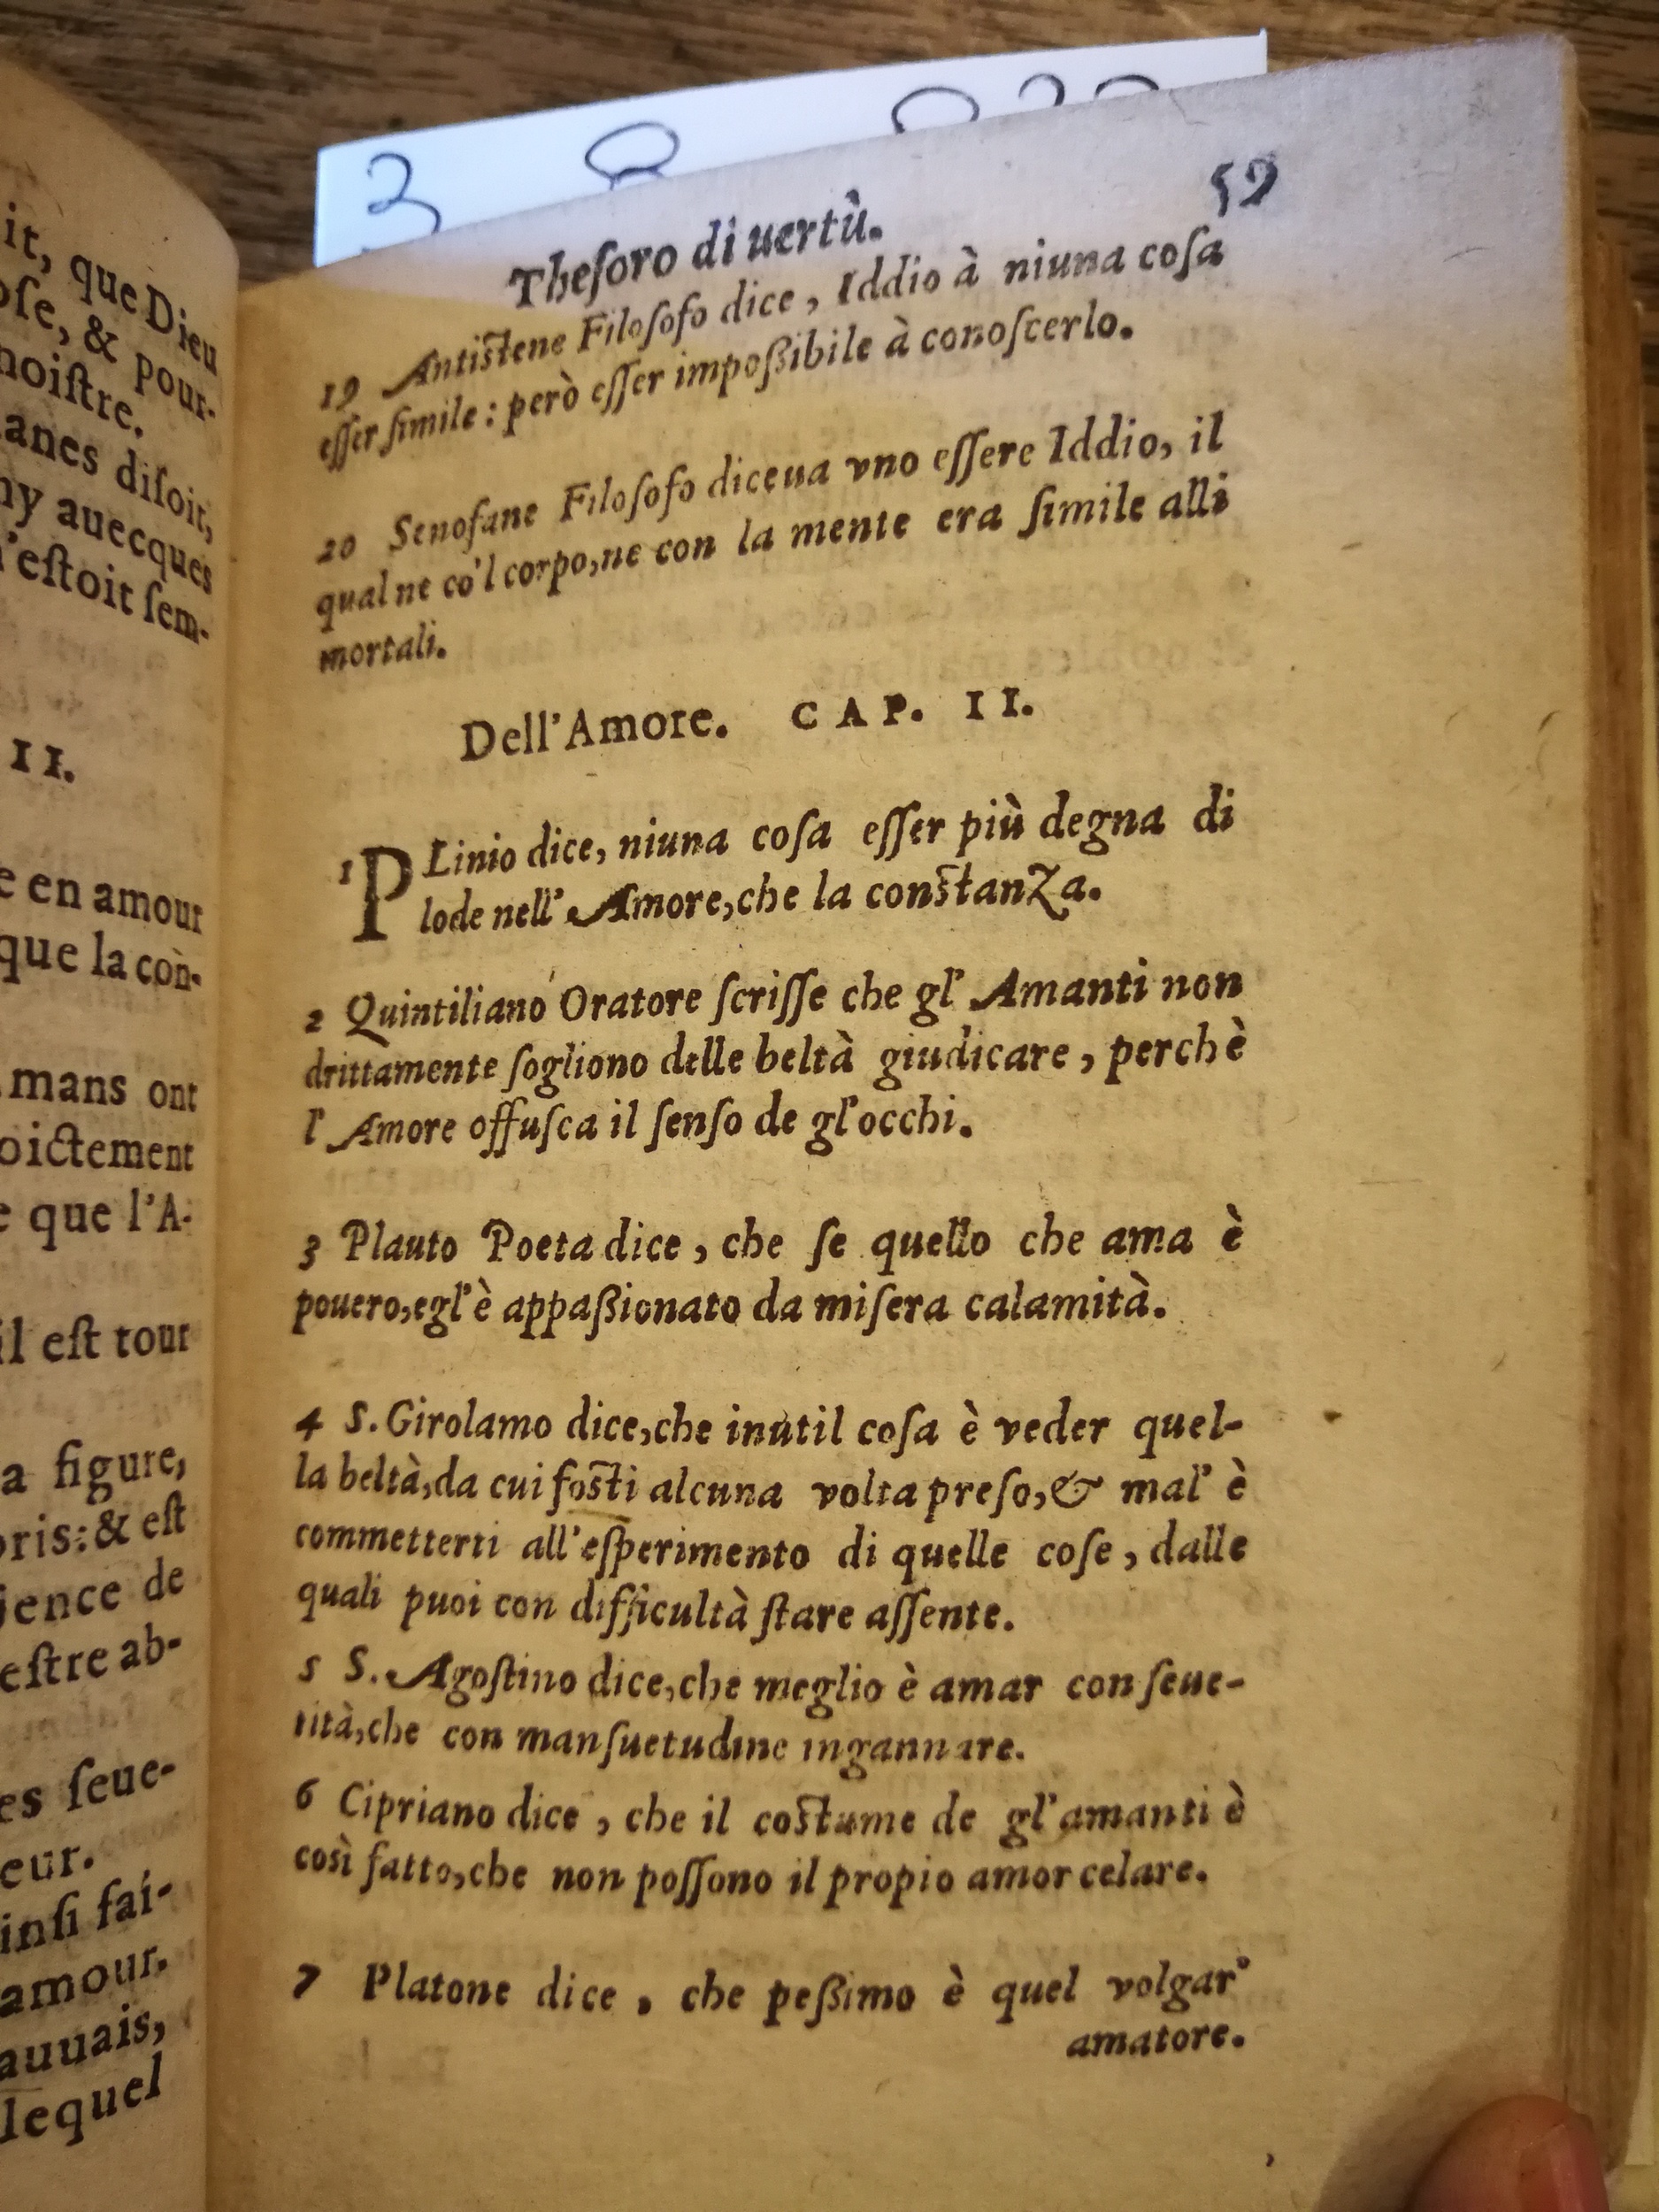 it, que Dieu
ose, & pour-
noiſtre.
anes diſoit,
ny auecques
n'eſtoit ſem-
II.
e en amour
que la con-
mans ont
oictement
e que l'A-
il eſt tout
a figure,
oris: & eſt
ience de
eſtre ab-
es ſeue-
eur.
inſi fai-
amour.
auuais,
lequel
59
Theſoro di uertù.
19 Antiſtene Filoſofo dice, Iddio à niuna coſa
eſſer ſimile : però eſſer impoßibile à conoſcerlo.
20 Senofane Filoſofo diceua vno eſſere Iddio, il
qual ne co'l corpo, ne con la mente era ſimile alli
mortali.
Dell'Amore. CAP. II.
1 PLinio dice, niuna coſa eſſer più degna di
lode nell'Amore, che la conſtanza.
2 Quintiliano Oratore ſcriſſe che gl'Amanti non
drittamente ſogliono delle beltà giudicare, perchè
l'Amore offuſca il ſenſo de gl'occhi.
3 Plauto Poeta dice, che ſe quello che ama è
pouero, egl'è appaßionato da miſera calamità.
4 S. Girolamo dice, che inutil coſa è veder quel-
la beltà, da cui foſti alcuna volta preſo, & mal'è
commetterti all'eſperimento di quelle coſe, dalle
quali puoi con difficultà ſtare aſſente.
5 S. Agoſtino dice, che meglio è amar con ſeue-
rità, che con manſuetudine ingannare.
6 Cipriano dice, che il coſtume de gl'amanti è
così fatto, che non poſſono il propio amor celare.
7 Platone dice, che peßimo è quel volgar'
amatore.